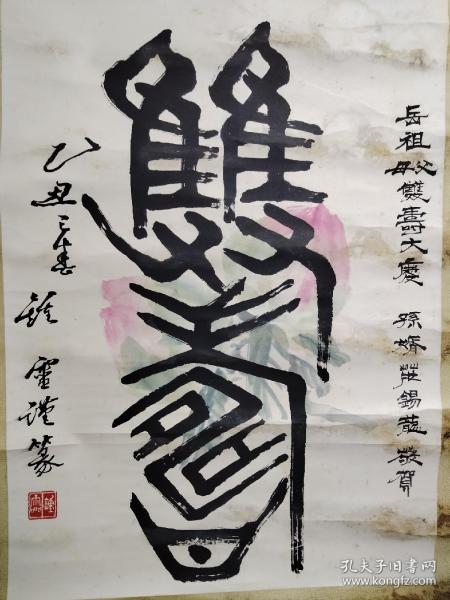 岳祖父母雙壽大慶 孫婿莊錫蘊敬賀
雙壽
乙丑之春
雷瑾篆
孔夫子旧书网
www.kongfz.com